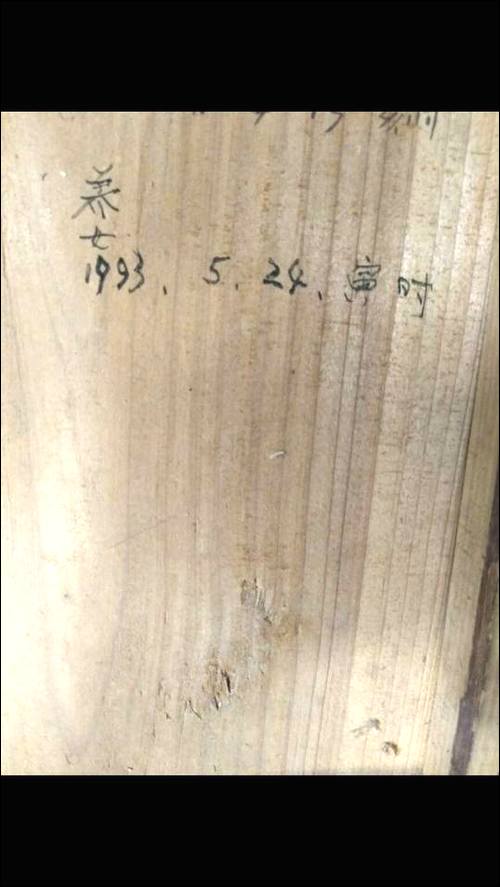 养
女
1993. 5. 24. 寅时